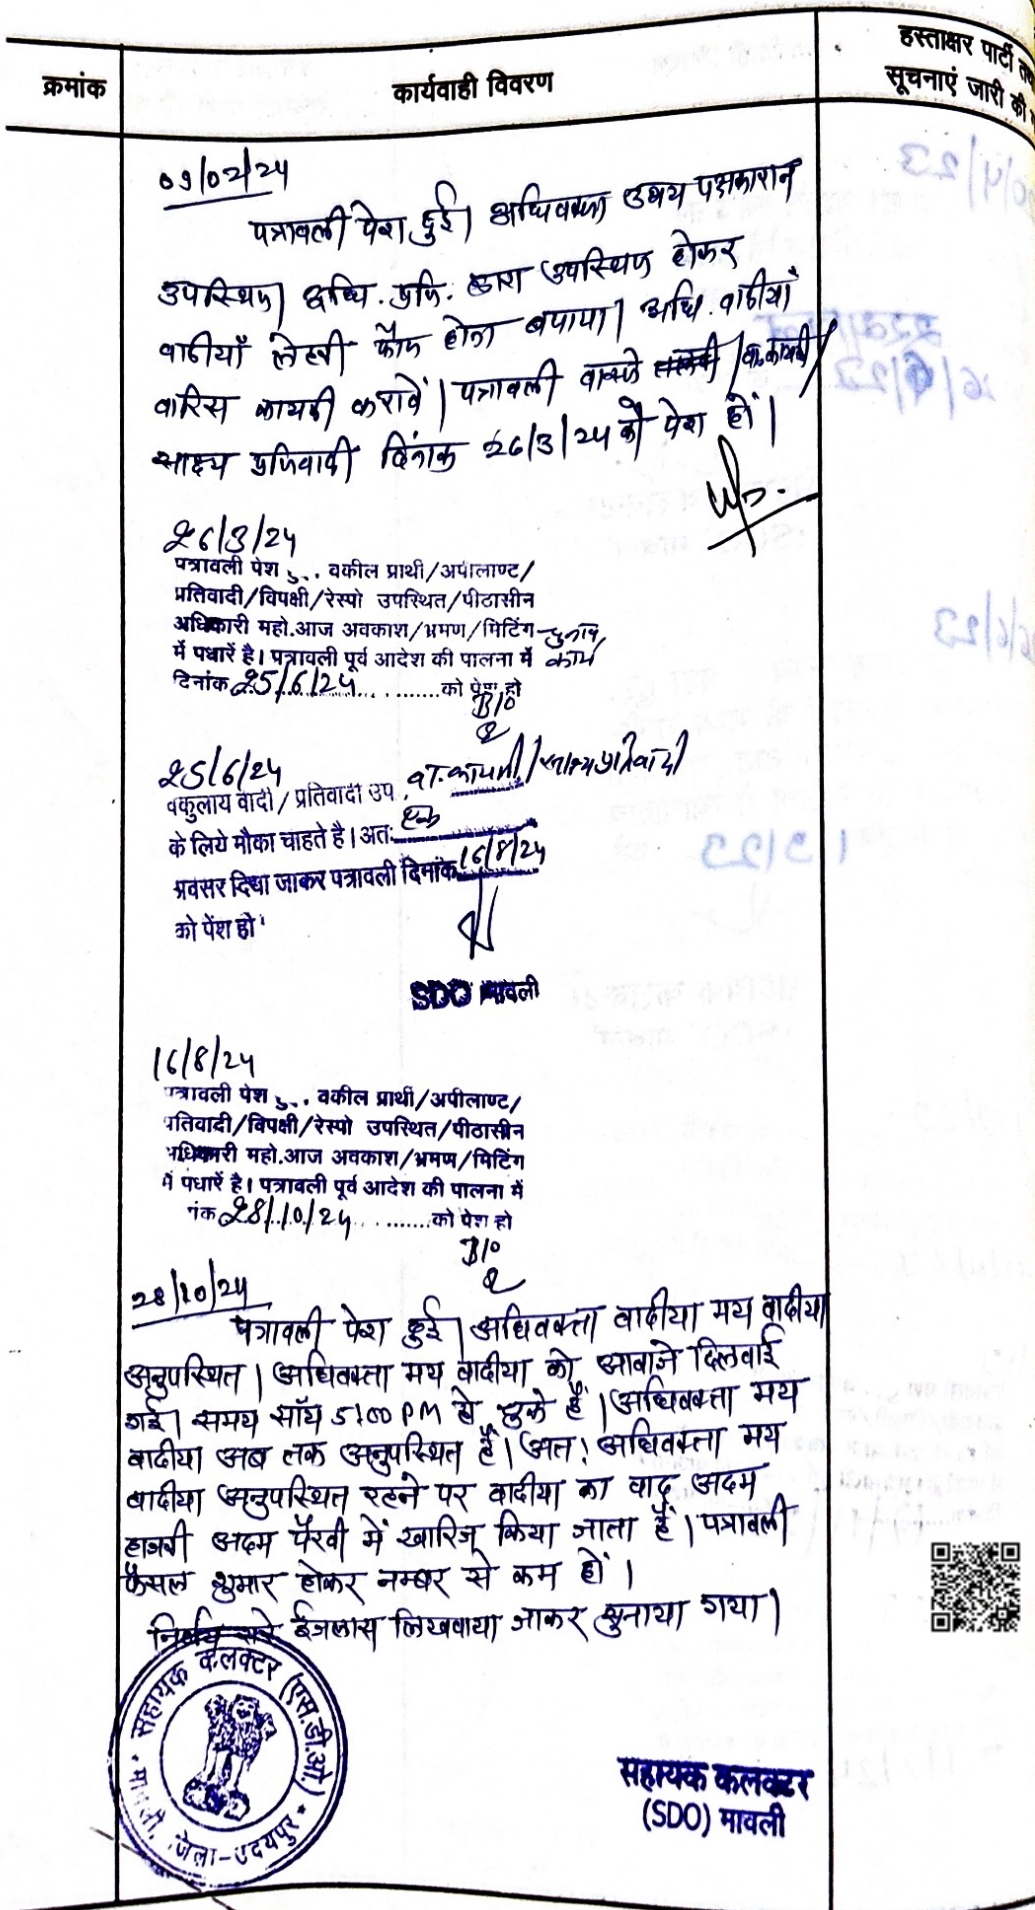 क्रमांक
कार्यवाही विवरण
हस्ताक्षर पार्टी
सूचनाएं जारी की
09/02/24
पत्रावली पेश हुई। अधिवक्ता उभय पक्षकारान
उपस्थित। अधि. प्रति. द्वारा उपस्थित होकर
वादीयाँ लेहरी फौत होना बताया। अधि. वादीयाँ
वारिस कायमी करावें। पत्रावली वास्ते / वा.कायमी /
साक्ष्य प्रतिवादी दिनांक 26/3/24 को पेश हों।
26/3/24
पत्रावली पेश हु... वकील प्रार्थी/अपीलाण्ट/
प्रतिवादी/विपक्षी/रेस्पो उपस्थित/पीठासीन
अधिकारी महो.आज अवकाश/भ्रमण/मिटिंग चुनाव
में पधारें है। पत्रावली पूर्व आदेश की पालना में कार्य
दिनांक 25/6/24 ........को पेश हो
B/o
25/6/24
वकुलाय वादी/प्रतिवादी उप. वा.कायमी/साक्ष्य प्रतिवादी
के लिये मौका चाहते है। अतः एक
अवसर दिया जाकर पत्रावली दिनांक 16/8/24
को पेंश हो
SDO मावली
16/8/24
पत्रावली पेश हु... वकील प्रार्थी/अपीलाण्ट/
प्रतिवादी/विपक्षी/रेस्पो उपस्थित/पीठासीन
अधिकारी महो.आज अवकाश/भ्रमण/मिटिंग
में पधारें है। पत्रावली पूर्व आदेश की पालना में
नंक 28/10/24 ........को पेश हो
B/o
28/10/24
पत्रावली पेश हुई। अधिवक्ता वादीया मय वादीया
अनुपस्थित। अधिवक्ता मय वादीया को आवाजे दिलवाई
गई। समय सॉय 5:00 PM हो चुके हैं। अधिवक्ता मय
वादीया अब तक अनुपस्थित हैं। अतः अधिवक्ता मय
वादीया अनुपस्थित रहने पर वादीया का वाद अदम
हाजरी अदम पैरवी में खारिज किया जाता हैं। पत्रावली
फैसल शुमार होकर नम्बर से कम हों।
निर्णय सरे ईजलास लिखवाया जाकर सुनाया गया।
सहायक कलक्टर (एस.डी.ओ.)
मावली, जिला-उदयपुर
सहायक कलक्टर
(SDO) मावली